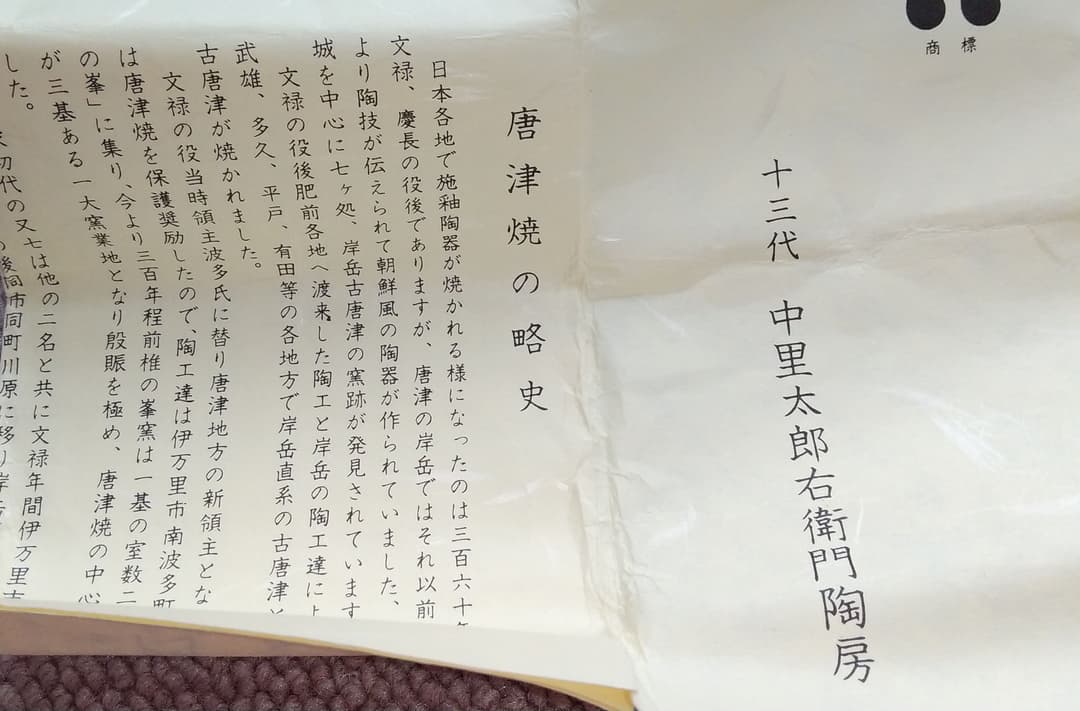 商標
十三代 中里太郎右衛門陶房
唐津焼の略史
日本各地で施釉陶器が焼かれる様になったのは三百六十
文禄、慶長の役後でありますが、唐津の岸岳ではそれ以前
より陶技が伝えられて朝鮮風の陶器が作られていました、
城を中心に七ヶ処、岸岳古唐津の窯跡が発見されています
文禄の役後肥前各地へ渡来した陶工と岸岳の陶工達によ
武雄、多久、平戸、有田等の各地方で岸岳直系の古唐津と
古唐津が焼かれました。
文禄の役当時領主波多氏に替り唐津地方の新領主とな
は唐津焼を保護奨励したので、陶工達は伊万里市南波多町
の峯」に集り、今より三百年程前椎の峯窯は一基の室数二
が三基ある一大窯業地となり殷賑を極め、唐津焼の中心
した。
初代の又七は他の二名と共に文禄年間伊万里市
後同市同町川原に移り岸